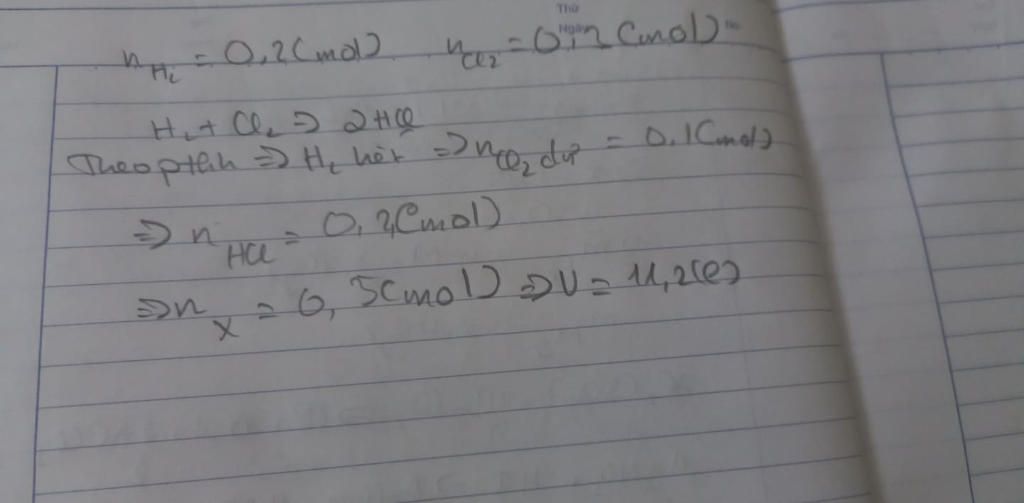 Thứ
Ngày No
n H₂ = 0,2(mol) n Cl₂ = 0,2(mol)
H₂ + Cl₂ ⇒ 2HCl
Theo pthh ⇒ H₂ hết ⇒ n Cl₂ dư = 0.1(mol)
⇒ n HCl = 0,2(mol)
⇒ n X = 0,5(mol) ⇒ V = 11,2(l)